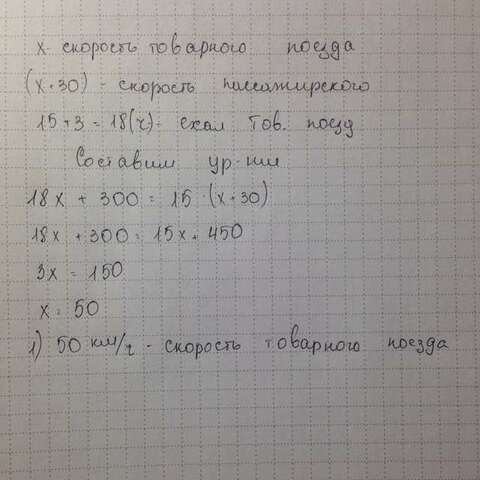 x - скорость товарного поезда
(x+30) - скорость пассажирского
15+3=18(ч) - ехал тов. поезд
Составим ур-ние
18x + 300 = 15 · (x+30)
18x + 300 = 15x + 450
3x = 150
x = 50
1) 50 км/ч - скорость товарного поезда